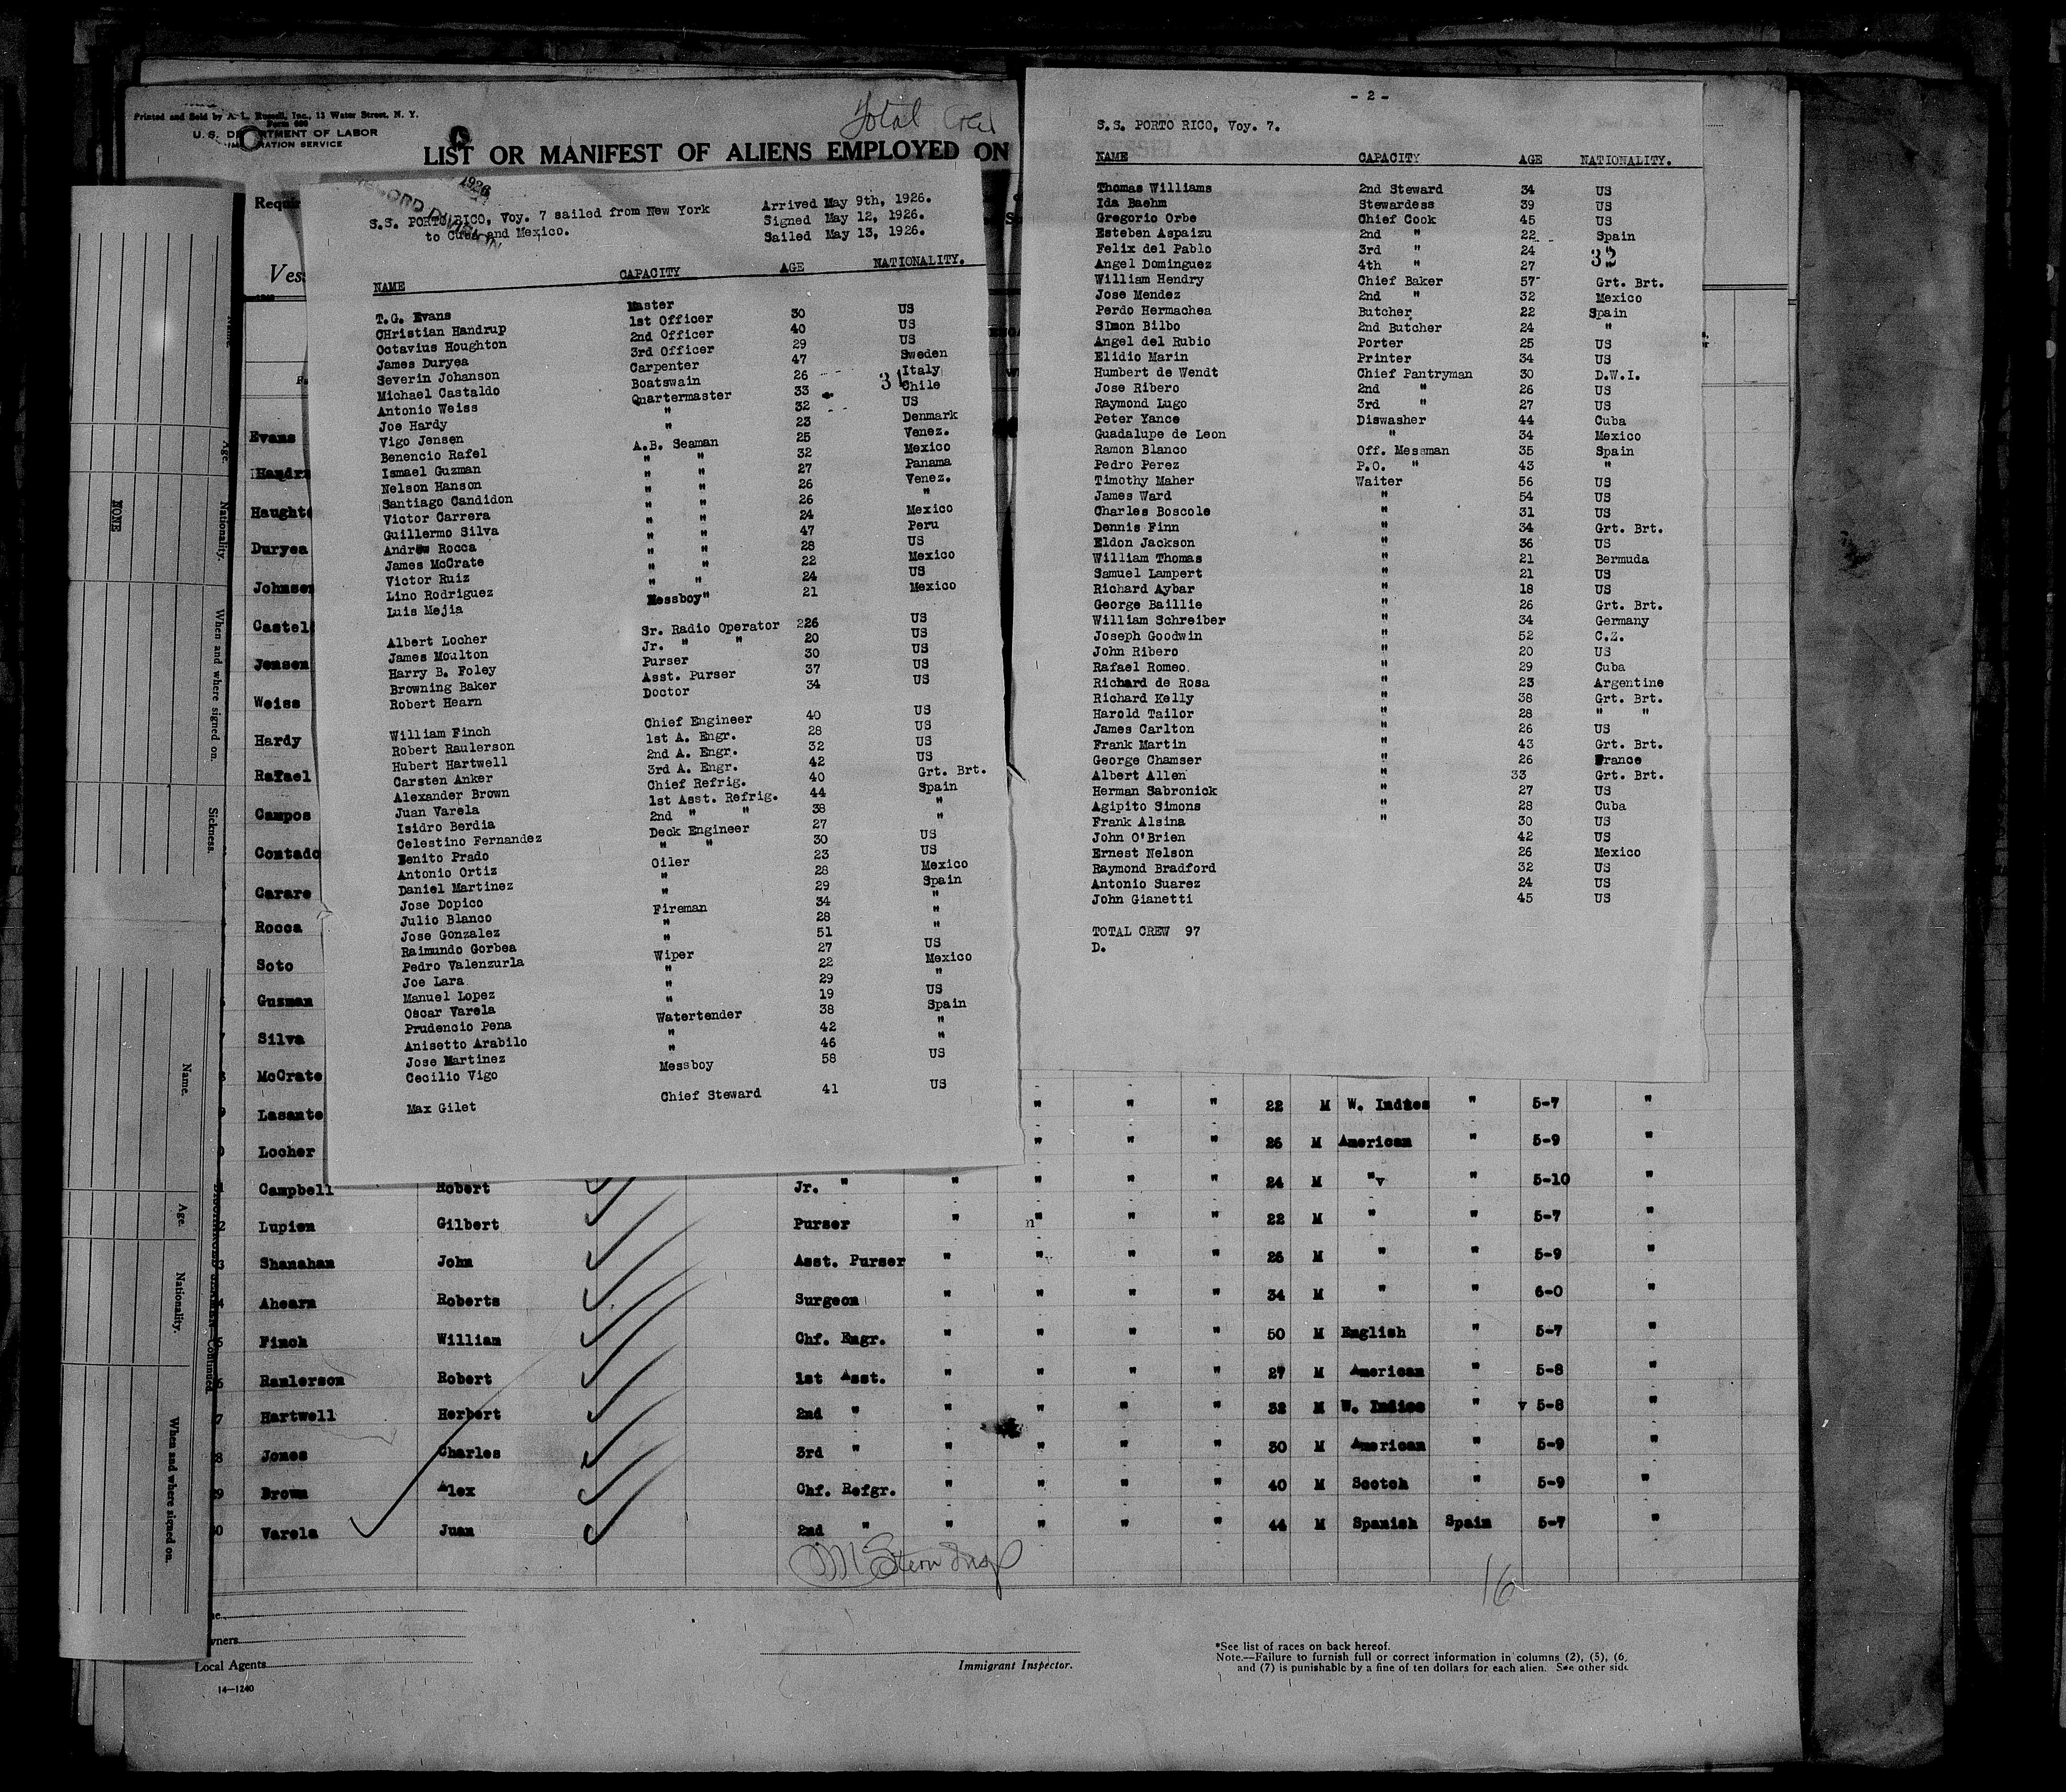 Printed and Sold by A. L. Russell, Inc., 13 Water Street, N. Y.
Form 600
U. S. DEPARTMENT OF LABOR
IMMIGRATION SERVICE
Total Crew
LIST OR MANIFEST OF ALIENS EMPLOYED ON
1926
S.S. PORTO RICO, Voy. 7 sailed from New York
to Cuba and Mexico.
Arrived May 9th, 1926.
Signed May 12, 1926.
Sailed May 13, 1926.
NAME CAPACITY AGE NATIONALITY.
T.G. Evans Master
CHristian Handrup 1st Officer 30 US
Octavius Houghton 2nd Officer 40 US
James Duryea 3rd Officer 29 US
Severin Johanson Carpenter 47 Sweden
Michael Castaldo Boatswain 26 Italy
Antonio Weiss Quartermaster 33 Chile
Joe Hardy " 32 US
Vigo Jensen " 23 Denmark
Benencio Rafel A.B. Seaman 25 Venez.
Ismael Guzman " " 32 Mexico
Nelson Hanson " " 27 Panama
Santiago Candidon " " 26 Venez.
Victor Carrera " " 26 "
Guillermo Silva " " 24 Mexico
Andrew Rocca " " 47 Peru
James McCrate " " 28 US
Victor Ruiz " " 22 Mexico
Lino Rodriguez " " 24 US
Luis Mejia Messboy" 21 Mexico
Albert Locher Sr. Radio Operator 226 US
James Moulton Jr. " " 20 US
Harry B. Foley Purser 30 US
Browning Baker Asst. Purser 37 US
Robert Hearn Doctor 34 US
William Finch Chief Engineer 40 US
Robert Raulerson 1st A. Engr. 28 US
Hubert Hartwell 2nd A. Engr. 32 US
Carsten Anker 3rd A. Engr. 42 US
Alexander Brown Chief Refrig. 40 Grt. Brt.
Juan Varela 1st Asst. Refrig. 44 Spain
Isidro Berdia 2nd " " 38 "
Celestino Fernandez Deck Engineer 27 "
Benito Prado " " 30 US
Antonio Ortiz Oiler 23 US
Daniel Martinez " 28 Mexico
Jose Dopico " 29 Spain
Julio Blanco Fireman 34 "
Jose Gonzalez " 28 "
Raimundo Gorbea " 51 "
Pedro Valenzurla Wiper 27 US
Joe Lara " 22 Mexico
Manuel Lopez " 29 "
Oscar Varela " 19 US
Prudencio Pena Watertender 38 Spain
Anisetto Arabilo " 42 "
Jose Martinez " 46 "
Cecilio Vigo Messboy 58 US
Max Gilet Chief Steward 41 US
- 2 -
S.S. PORTO RICO, Voy. 7.
NAME CAPACITY AGE NATIONALITY.
Thomas Williams 2nd Steward 34 US
Ida Baehm Stewardess 39 US
Gregorio Orbe Chief Cook 45 US
Esteben Aspaizu 2nd " 22 Spain
Felix del Pablo 3rd " 24 "
32
Angel Dominguez 4th " 27 "
William Hendry Chief Baker 57 Grt. Brt.
Jose Mendez 2nd " 32 Mexico
Perdo Hermachea Butcher 22 Spain
SImon Bilbo 2nd Butcher 24 "
Angel del Rubio Porter 25 US
Elidio Marin Printer 34 US
Humbert de Wendt Chief Pantryman 30 D.W.I.
Jose Ribero 2nd " 26 US
Raymond Lugo 3rd " 27 US
Peter Yance Diswasher 44 Cuba
Guadalupe de Leon " 34 Mexico
Ramon Blanco Off. Messman 35 Spain
Pedro Perez P.O. " 43 "
Timothy Maher Waiter 56 US
James Ward " 54 US
Charles Boscole " 31 US
Dennis Finn " 34 Grt. Brt.
Eldon Jackson " 36 US
William Thomas " 21 Bermuda
Samuel Lampert " 21 US
Richard Aybar " 18 US
George Baillie " 26 Grt. Brt.
William Schreiber " 34 Germany
Joseph Goodwin " 52 C.Z.
John Ribero " 20 US
Rafael Romeo. " 29 Cuba
Richard de Rosa " 23 Argentine
Richard Kelly " 38 Grt. Brt.
Harold Tailor " 28 " "
James Carlton " 26 US
Frank Martin " 43 Grt. Brt.
George Chamser " 26 France
Albert Allen " 33 Grt. Brt.
Herman Sabronick " 27 US
Agipito Simons " 28 Cuba
Frank Alsina " 30 US
John O'Brien 42 US
Ernest Nelson 26 Mexico
Raymond Bradford 32 US
Antonio Suarez 24 US
John Gianetti 45 US
TOTAL CREW 97
D.
Evans
Handr
Haught
Duryea
Johnsen
Castel
Jensen
Weiss
Hardy
Rafael
Campos
Contado
Carare
Rocca
Soto
Guzman
Silva
McCrate
Lasante " " " 22 M W. Indies " 5-7 "
Locher " " " 26 M American " 5-9 "
Campbell Robert Jr. " " " " " 24 M " " 5-10 "
Lupien Gilbert Purser " " " " 22 M " " 5-7 "
Shanahan John Asst. Purser " " " " 26 M " " 5-9 "
Ahearn Roberts Surgeon " " " " 34 M " " 6-0 "
Finch William Chf. Engr. " " " " 50 M English " 5-7 "
Ranlerson Robert 1st Asst. " " " " 27 M American " 5-8 "
Hartwell Herbert 2nd " " " " " 32 M W. Indies " 5-8 "
Jones Charles 3rd " " " " " 30 M American " 5-9 "
Brown Alex Chf. Refgr. " " " " 40 M Scotch " 5-9 "
Varela Juan 2nd " " " " " 44 M Spanish Spain 5-7 "
M Stern Insp
16
Local Agents
Immigrant Inspector.
14—1240
*See list of races on back hereof.
Note.—Failure to furnish full or correct information in columns (2), (5), (6
and (7) is punishable by a fine of ten dollars for each alien. See other side
NONE
Age.
Nationality.
When and where signed on.
Sickness.
Name.
Age.
Nationality.
When and where signed on.